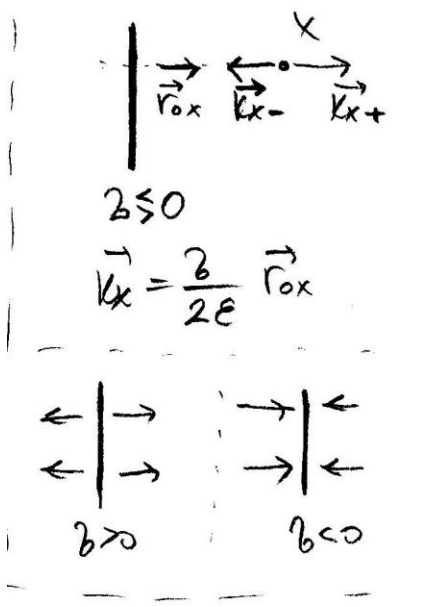 x
r⃗ₒₓ K⃗ₓ₋ K⃗ₓ₊
σ ≶ 0
K⃗ₓ = σ/2ε r⃗ₒₓ
σ>0 σ<0